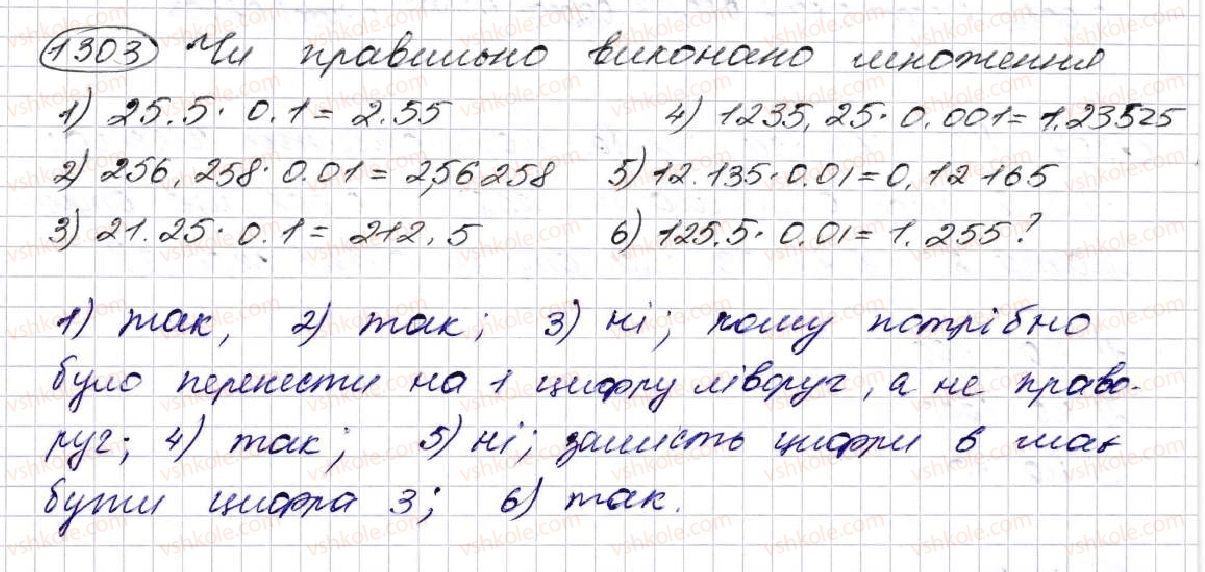 1303 Чи правильно виконано множення
1) 25.5 · 0.1 = 2.55 4) 1235,25 · 0.001 = 1.23525
2) 256,258 · 0.01 = 2,56258 5) 12.135 · 0.01 = 0.12165
3) 21.25 · 0.1 = 212,5 6) 125.5 · 0.01 = 1.255?
1) так, 2) так; 3) ні; кому потрібно
було перенести на 1 цифру ліворуч, а не право-
руч; 4) так; 5) ні; замість цифри 6 має
бути цифра 3; 6) так.